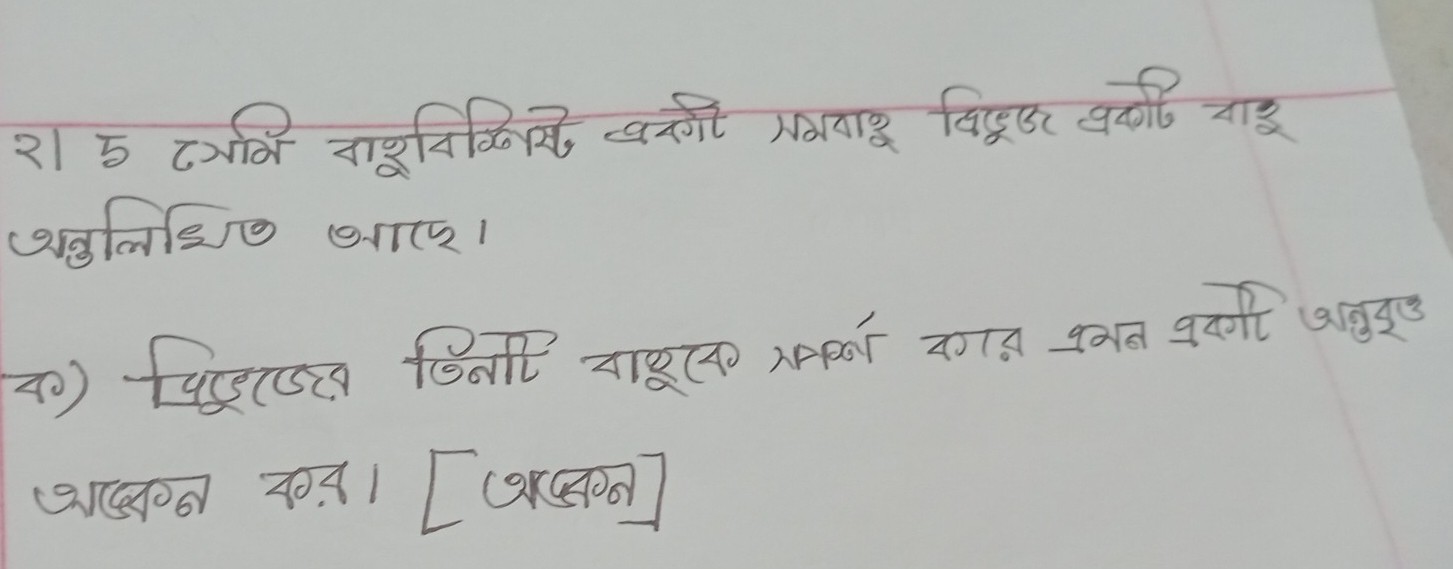 ২। ৮ সেমি বাহুবিশিষ্ট একটি সমবাহু ত্রিভুজ একটি বাহু
অনুলিখিত আছে।
ক) ত্রিভুজের তিনটি বাহুকে স্পর্শ করে এমন একটি অনুবৃত্ত
অঙ্কন কর। [অঙ্কন]